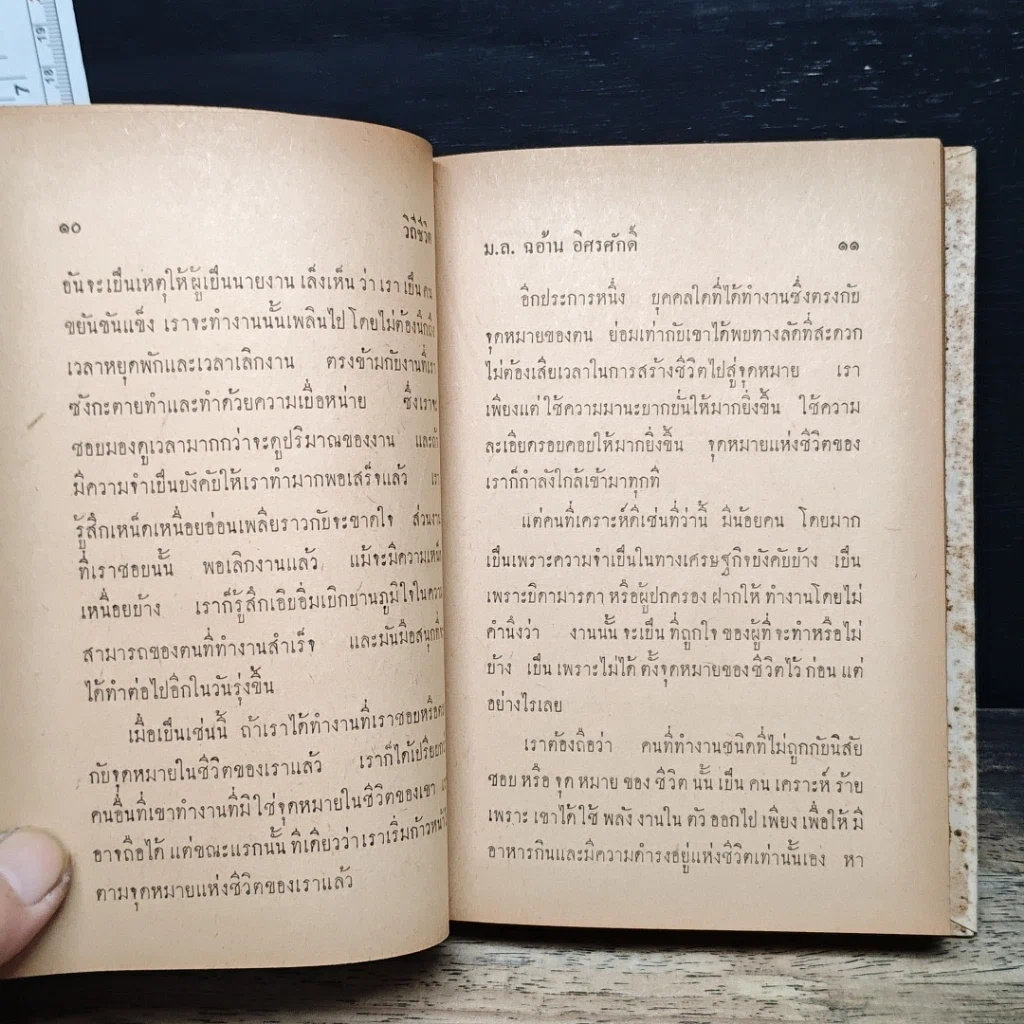 ๑๐ วิถีชีวิต
อันจะเป็นเหตุให้ผู้เป็นนายงาน เล็งเห็น ว่า เรา เป็น คน
ขยันขันแข็ง เราจะทำงานนั้นเพลินไป โดยไม่ต้องนึกถึง
เวลาหยุดพักและเวลาเลิกงาน ตรงข้ามกับงานที่เรา
ซังกะตายทำและทำด้วยความเบื่อหน่าย ซึ่งเราจะ
ชอบมองดูเวลามากกว่าจะดูปริมาณของงาน และถ้า
มีความจำเป็นบังคับให้เราทำมากพอเสร็จแล้ว เรา
รู้สึกเหน็ดเหนื่อยอ่อนเพลียราวกับจะขาดใจ ส่วนงาน
ที่เราชอบนั้น พอเลิกงานแล้ว แม้จะมีความเหน็ด
เหนื่อยบ้าง เราก็รู้สึกเอิบอิ่มเบิกบานภูมิใจในความ
สามารถของตนที่ทำงานสำเร็จ และมันมือสนุกที่จะ
ได้ทำต่อไปอีกในวันรุ่งขึ้น
เมื่อเป็นเช่นนี้ ถ้าเราได้ทำงานที่เราชอบหรือตรง
กับจุดหมายในชีวิตของเราแล้ว เราก็ได้เปรียบกว่า
คนอื่นที่เขาทำงานที่มิใช่จุดหมายในชีวิตของเขา
อาจถือได้ แต่ขณะแรกนั้น ทีเดียวว่า เราเริ่มก้าวหน้าไป
ตามจุดหมายแห่งชีวิตของเราแล้ว
ม.ล. ฉอ้าน อิศรศักดิ์ ๑๑
อีกประการหนึ่ง บุคคลใดที่ได้ทำงานซึ่งตรงกับ
จุดหมายของตน ย่อมเท่ากับเขาได้พบทางลัดที่สะดวก
ไม่ต้องเสียเวลาในการสร้างชีวิตไปสู่จุดหมาย เรา
เพียงแต่ ใช้ความมานะบากบั่นให้มากยิ่งขึ้น ใช้ความ
ละเอียดรอบคอบให้มากยิ่งขึ้น จุดหมายแห่งชีวิตของ
เราก็กำลังใกล้เข้ามาทุกที
แต่คนที่เคราะห์ดีเช่นที่ว่านี้ มีน้อยคน โดยมาก
เป็นเพราะความจำเป็นในทางเศรษฐกิจบังคับบ้าง เป็น
เพราะบิดามารดา หรือผู้ปกครอง ฝากให้ ทำงานโดยไม่
คำนึงว่า งานนั้น จะเป็น ที่ถูกใจ ของผู้ที่ จะทำหรือไม่
บ้าง เป็น เพราะไม่ได้ ตั้งจุดหมายของชีวิตไว้ ก่อน แต่
อย่างไรเลย
เราต้องถือว่า คนที่ทำงานชนิดที่ไม่ถูกกับนิสัย
ชอบ หรือ จุด หมาย ของ ชีวิต นั้น เป็น คน เคราะห์ ร้าย
เพราะ เขาได้ใช้ พลัง งานใน ตัว ออกไป เพียง เพื่อให้ มี
อาหารกินและมีความดำรงอยู่แห่งชีวิตเท่านั้นเอง หา